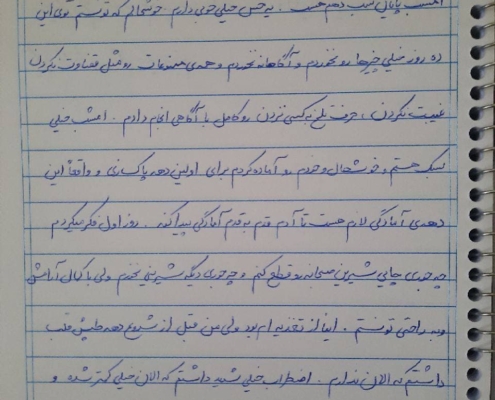 امشب پایان شب دهم هست. یه حس خیلی خوبی دارم. خوشحالم که تونستم توی این
ده روز خیلی چیزها رو نخوردم و آگاهانه نخوردم و همه‌ی ممنوعات رو مثل قضاوت نکردن
غیبت نکردن، حرف تلخ به کسی نزدن رو کامل با آگاهی انجام دادم. امشب خیلی
سبک هستم و خوشحال و خودم رو آماده کردم برای اولین دهه پاکسازی و واقعاً این
دهه‌ی آمادگی لازم هست تا آدم قدم به قدم آمادگی پیدا کند. روز اول فکر میکردم
چه جوری چایی شیرین صبحانه رو قطع کنم و چه جوری دیگه شیرینی نخورم ولی با کمال آرامش
و به راحتی تونستم. اینا از تغذیه ام بود ولی من قبل از شروع دهه طپش قلب
داشتم که الان ندارم. اضطراب خیلی شدید داشتم که الان خیلی کمتر شده و